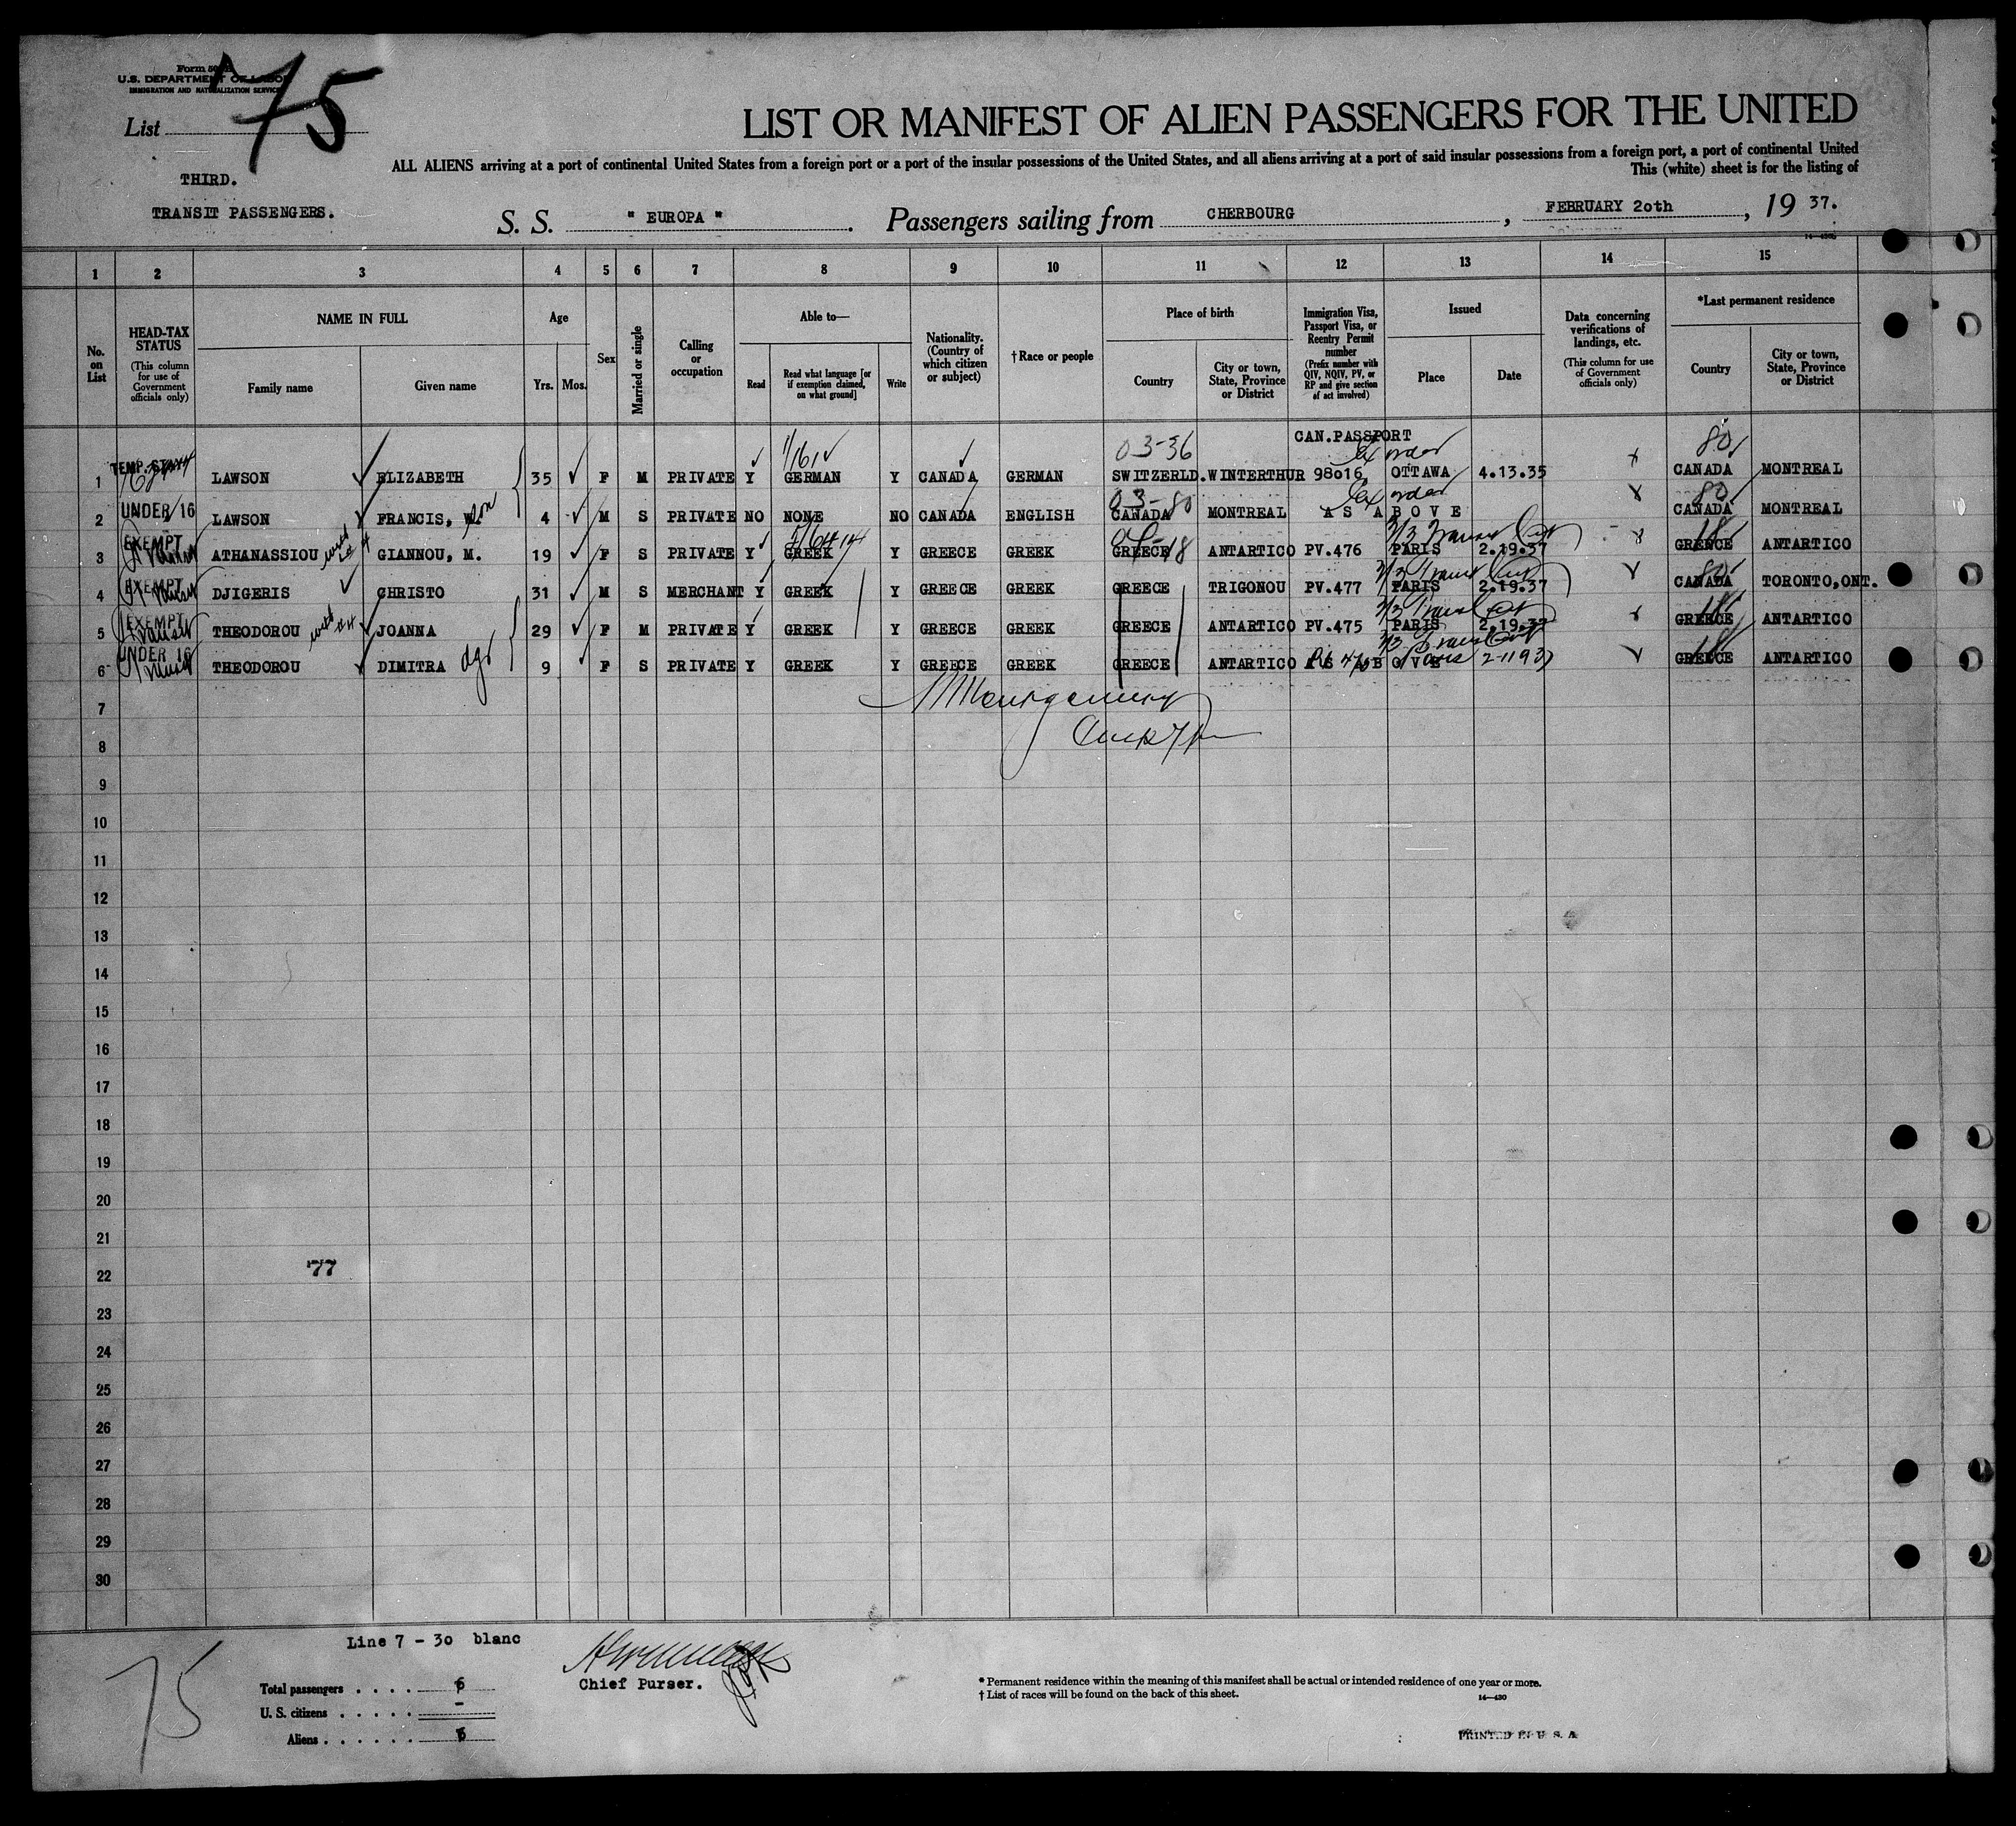 Form 500
U.S. DEPARTMENT OF LABOR
IMMIGRATION AND NATURALIZATION SERVICE
List 75
LIST OR MANIFEST OF ALIEN PASSENGERS FOR THE UNITED
ALL ALIENS arriving at a port of continental United States from a foreign port or a port of the insular possessions of the United States, and all aliens arriving at a port of said insular possessions from a foreign port, a port of continental United
This (white) sheet is for the listing of
THIRD.
TRANSIT PASSENGERS.
S. S. " EUROPA ". Passengers sailing from CHERBOURG, FEBRUARY 20th, 19 37.
1 2 3 4 5 6 7 8 9 10 11 12 13 14 15
No. on List
HEAD-TAX STATUS
(This column for use of Government officials only)
NAME IN FULL
Family name
Given name
Age
Yrs. Mos.
Sex
Married or single
Calling or occupation
Able to—
Read
Read what language [or if exemption claimed, on what ground]
Write
Nationality. (Country of which citizen or subject)
†Race or people
Place of birth
Country
City or town, State, Province or District
Immigration Visa, Passport Visa, or Reentry Permit number
(Prefix number with QIV, NQIV, PV, or RP and give section of act involved)
Issued
Place
Date
Data concerning verifications of landings, etc.
(This column for use of Government officials only)
*Last permanent residence
Country
City or town, State, Province or District
03-36 CAN.PASSPORT 80
1 TEMP.STAY LAWSON ELIZABETH 35 F M PRIVATE Y GERMAN Y CANADA GERMAN SWITZERLD. WINTERTHUR 98016 OTTAWA 4.13.35 CANADA MONTREAL
03-80 80
2 UNDER 16 LAWSON FRANCIS, W. son 4 M S PRIVATE NO NONE NO CANADA ENGLISH CANADA MONTREAL AS ABOVE CANADA MONTREAL
3 EXEMPT ATHANASSIOU GIANNOU, M. 19 F S PRIVATE Y GREEK Y GREECE GREEK GREECE ANTARTICO PV.476 PARIS 2.19.37 GREECE ANTARTICO
4 EXEMPT DJIGERIS CHRISTO 31 M S MERCHANT Y GREEK Y GREECE GREEK GREECE TRIGONOU PV.477 PARIS 2.19.37 CANADA TORONTO,ONT.
5 EXEMPT THEODOROU JOANNA 29 F M PRIVATE Y GREEK Y GREECE GREEK GREECE ANTARTICO PV.475 PARIS 2.19.37 GREECE ANTARTICO
6 UNDER 16 THEODOROU DIMITRA dgr 9 F S PRIVATE Y GREEK Y GREECE GREEK GREECE ANTARTICO AS ABOVE GREECE ANTARTICO
7
8
9
10
11
12
13
14
15
16
17
18
19
20
21
22 77
23
24
25
26
27
28
29
30
Line 7 - 30 blanc
Chief Purser.
75
Total passengers . . . . 6
U. S. citizens . . . . . -
Aliens . . . . . . 6
* Permanent residence within the meaning of this manifest shall be actual or intended residence of one year or more.
† List of races will be found on the back of this sheet.
14—430
PRINTED IN U. S. A.